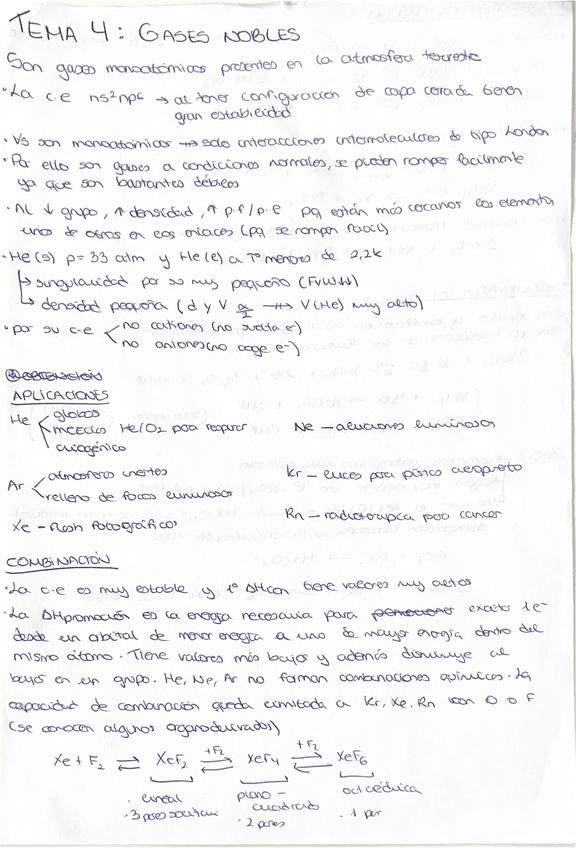 TEMA 4: GASES NOBLES
Son gases monoatómicos presentes en la atmósfera terrestre
· La c.e ns²np⁶ → al tener configuración de capa cerrada tienen
gran estabilidad
· Vs son monoatómicos → solo interacciones intermoleculares de tipo London
· Por ello son gases a condiciones normales, se pueden romper facilmente
ya que son bastantes débiles
· AL ↓ grupo, ↑ densidad, ↑ p.f/p.e pq están más cercanos los elementos
unos de otros en los enlaces (pq se rompen fácil)
· He(s) p = 33 atm y He(l) a Tª menores de 2,2k
↳ singularidad por su muy pequeño (FVW↓↓)
↳ densidad pequeña (d y V → V(He) muy alto)
· por su c.e no cationes (no suelta e⁻)
no aniones (no coge e⁻)
OBTENCIÓN
APLICACIONES
He globos
mezclas He/O₂ para respirar
criogénico
Ne – aluciones luminosos
Ar atmosferas inertes
relleno de focos luminosos
Kr – luces para pistas aeropuerto
Xe – flash fotográficos
Rn – radioterapia para cancer
COMBINACIÓN
· La c.e es muy estable y 1º ΔHion tiene valores muy altos
· La ΔHpromoción es la energía necesaria para exciter 1e⁻
desde un orbital de menor energía a uno de mayor energía dentro del
mismo átomo. Tiene valores más bajos y además disminuye al
bajar en un grupo. He, Ne, Ar no forman combinaciones químicas. La
capacidad de combinación queda limitada a Kr, Xe, Rn con O o F
(se conocen algunos organoderivados)
Xe + F₂ ⇌ XeF₂ ⇌ +F₂ XeF₄ ⇌ +F₂ XeF₆
· lineal
· 3 pares
plano-cuadrado
· 2 pares
octaédrica
· 1 par